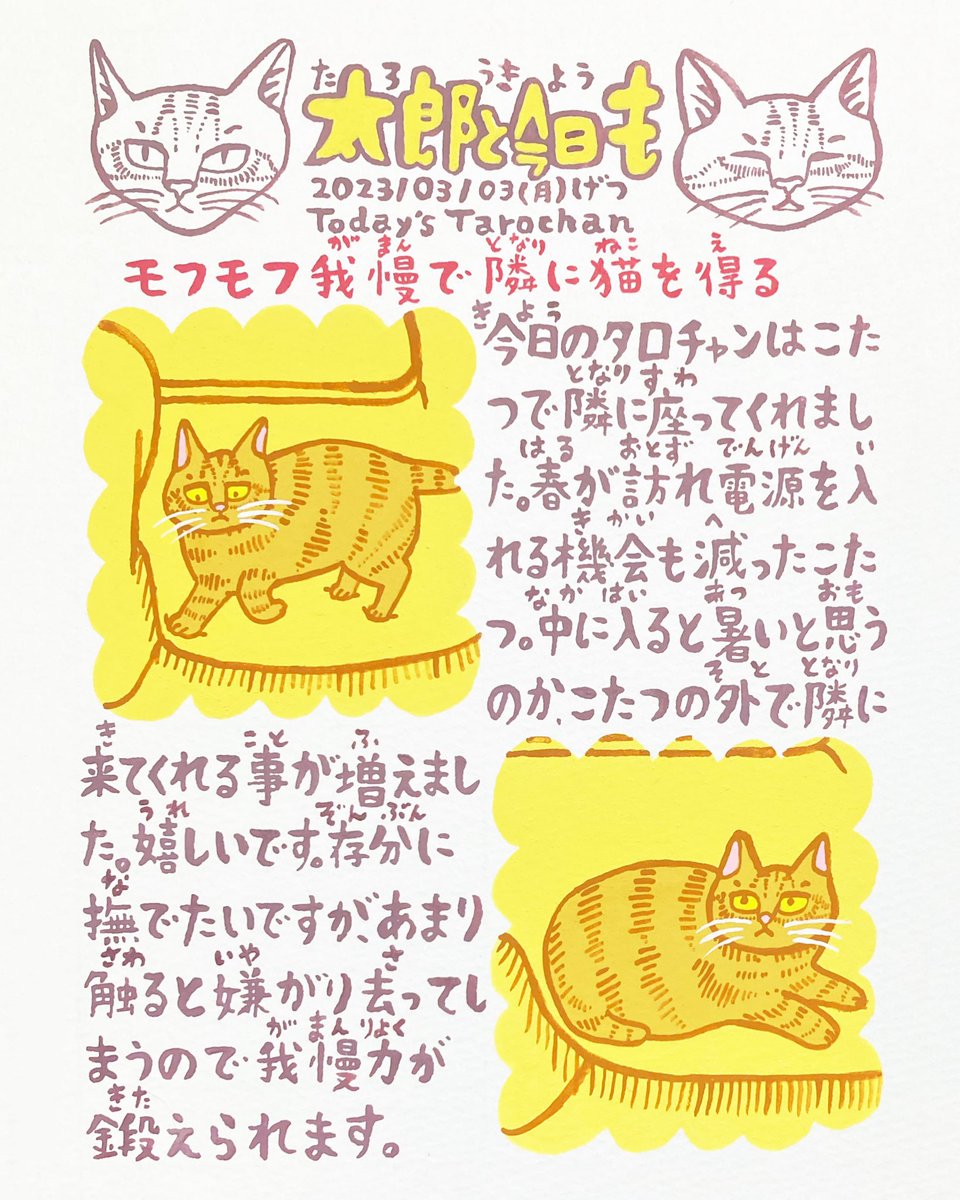 たろ うきよう
太郎と今日も
2023/03/03(月)げつ
Today's Tarochan
がまん となり ねこ え
モフモフ我慢で隣に猫を得る
きよう
今日のタロチャンはこた
となり すわ
つで隣に座ってくれまし
はる おとず でんげん い
た。春が訪れ電源を入
きかい へ
れる機会も減ったこた
なか はい あつ おも
つ。中に入ると暑いと思う
そと となり
のか、こたつの外で隣に
き こと ふ
来てくれる事が増えまし
うれ ぞんぶん
た。嬉しいです。存分に
な
撫でたいですが、あまり
さわ いや さ
触ると嫌がり去ってし
がまんりよく
まうので我慢力が
きた
鍛えられます。